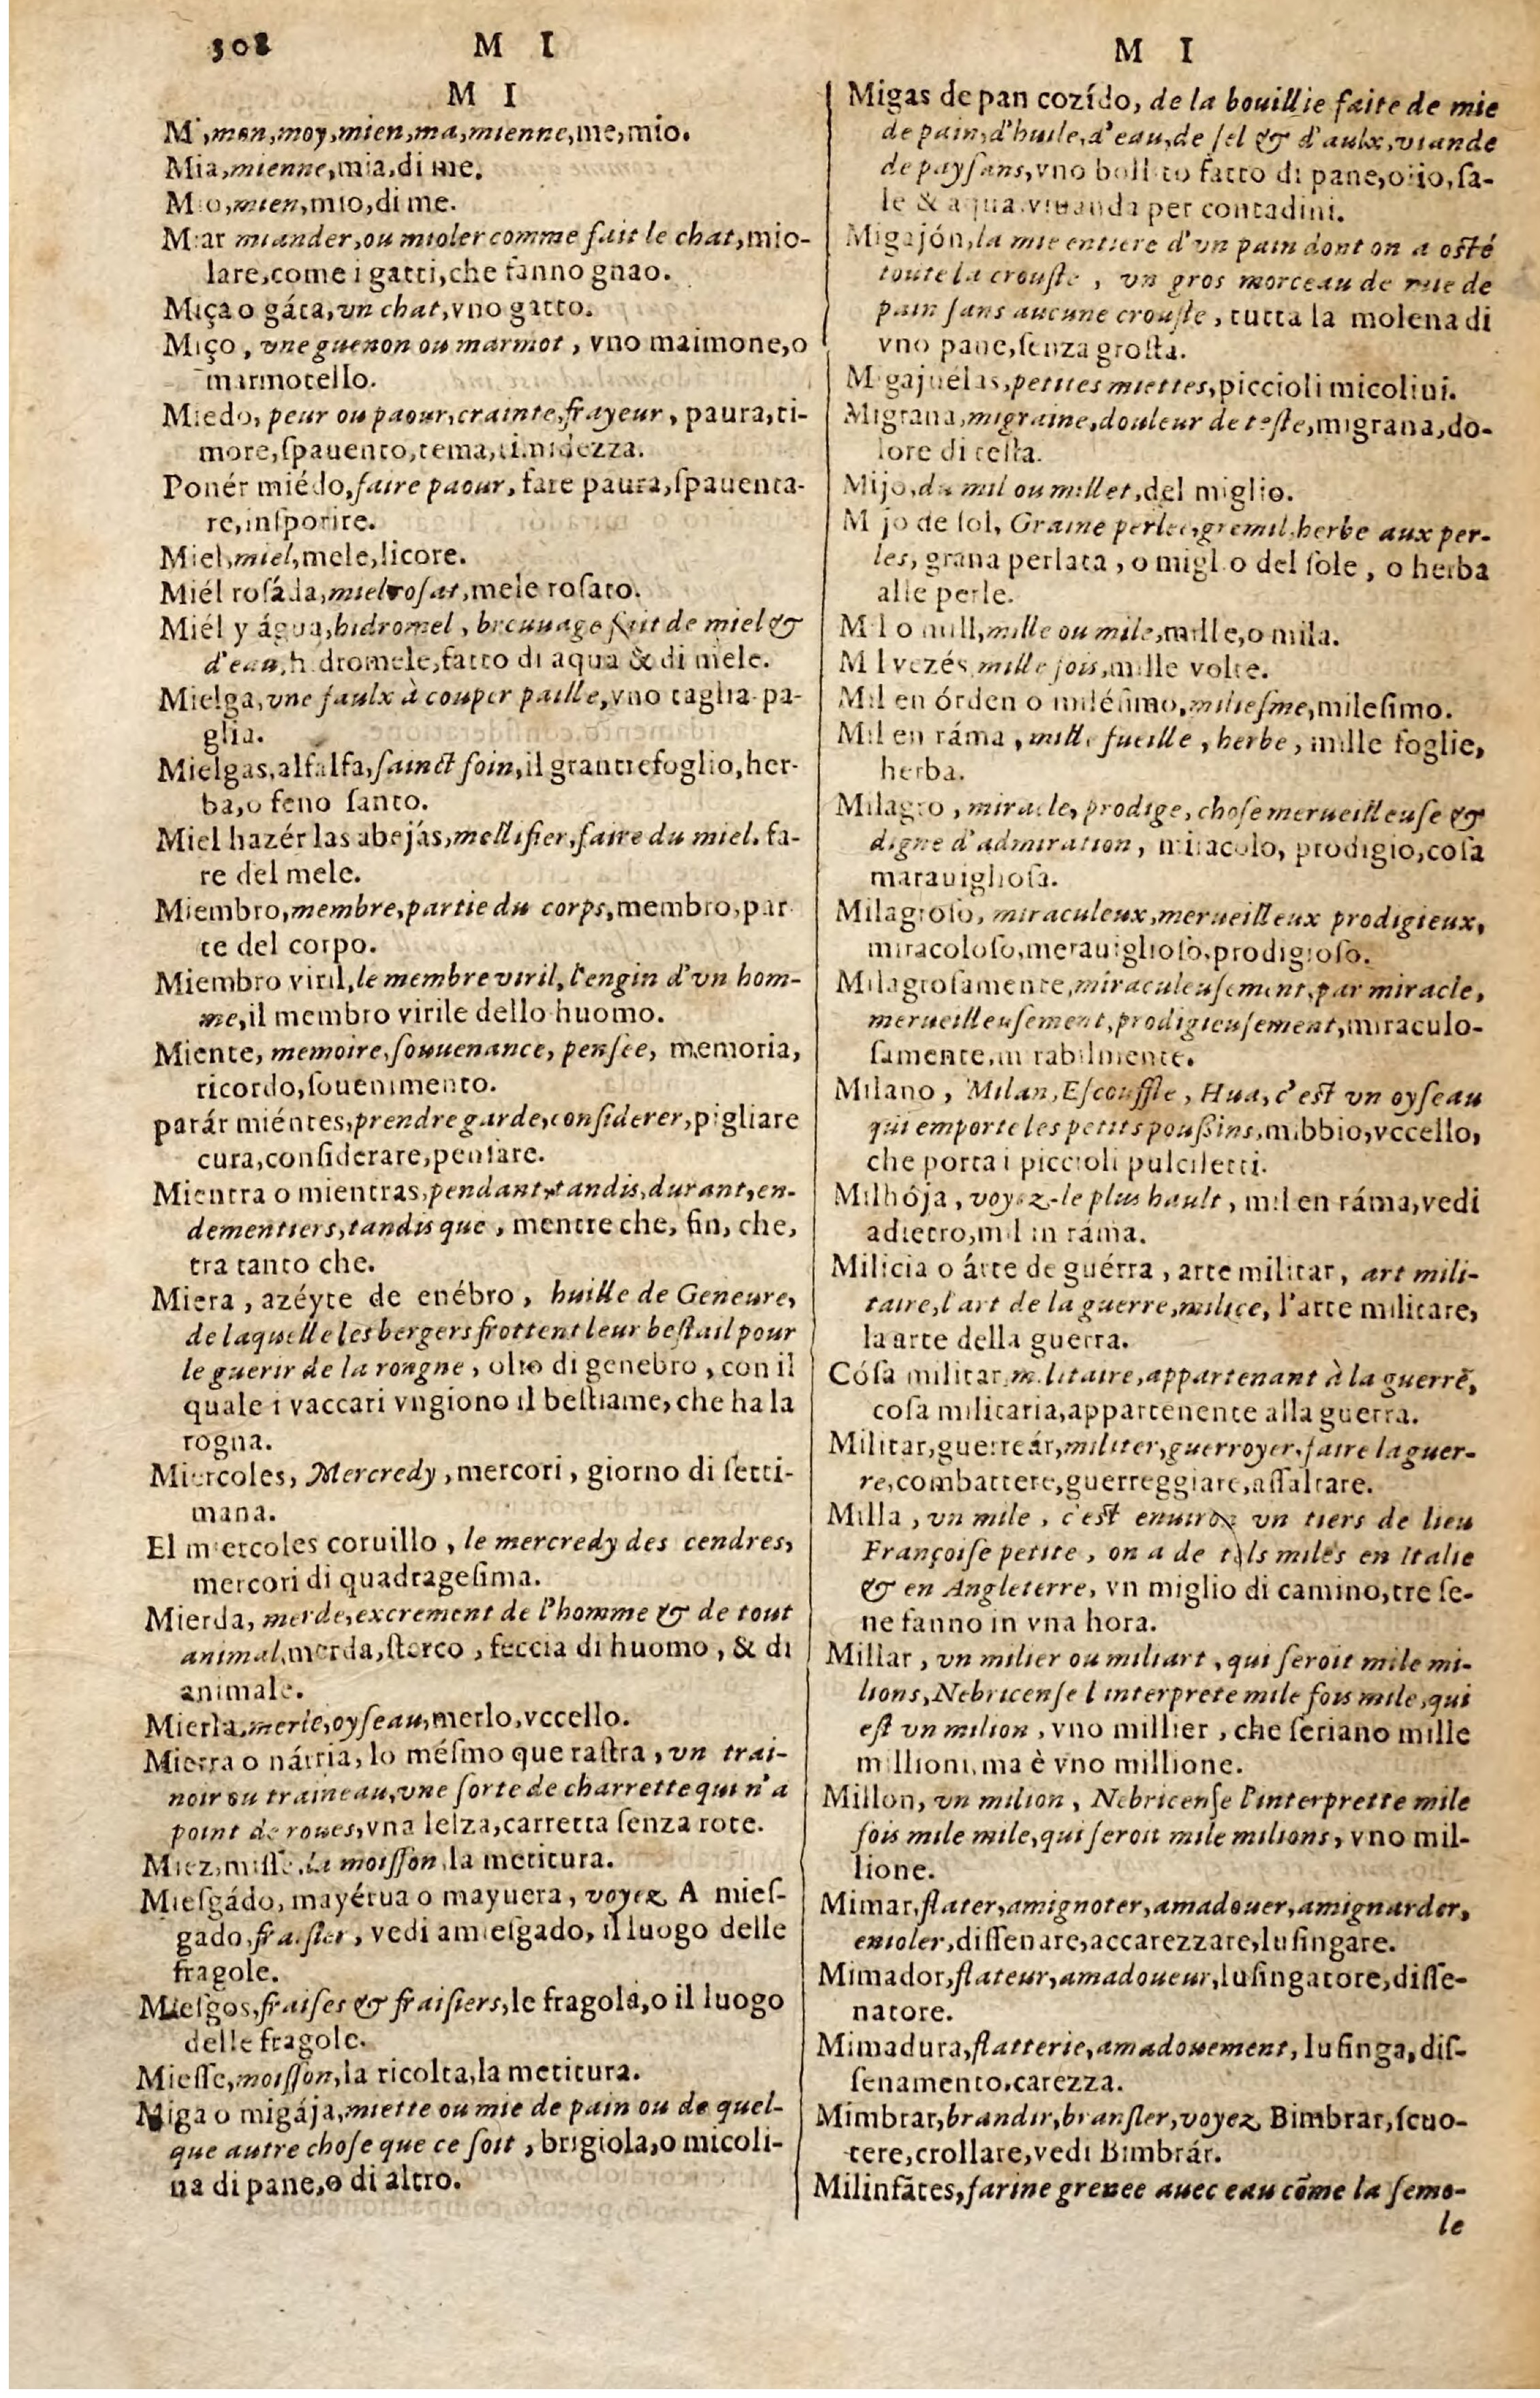 308 M I
M I
M', mon, moy, mien, ma, mienne, me, mio.
Mia, mienne, mia, di me.
Mio, mien, mio, di me.
Miar miander, ou mioler comme fait le chat, mio-
lare, come i gatti, che fanno gnao.
Miça o gáta, vn chat, vno gatto.
Miço, vne guenon ou marmot, vno maimone, o
marmotello.
Miedo, peur ou paour, crainte, frayeur, paura, ti-
more, ſpauento, tema, timidezza.
Ponér miédo, faire paour, fare paura, ſpauenta-
re, inſporire.
Miel, miel, mele, licore.
Miél roſáda, miel roſat, mele roſato.
Miél y água, hidromel, breuuage fait de miel &
d'eau, hidromele, fatto di aqua & di mele.
Mielga, vne faulx à couper paille, vno taglia pa-
glia.
Mielgas, alfalfa, ſainct foin, il grantrefoglio, her-
ba, o feno ſanto.
Miel hazér las abejás, mellifier, faire du miel. fa-
re del mele.
Miembro, membre, partie du corps, membro, par
te del corpo.
Miembro viril, le membre viril, l'engin d'vn hom-
me, il membro virile dello huomo.
Miente, memoire, ſouuenance, penſée, memoria,
ricordo, ſouenimento.
parár miéntes, prendre garde, conſiderer, pigliare
cura, conſiderare, penſare.
Mientra o mientras, pendant, tandis, durant, en-
dementiers, tandis que, mentre che, fin, che,
tra tanto che.
Miera, azéyte de enébro, huille de Geneure,
de laquelle les bergers frottent leur beſtail pour
le guerir de la rongne, olio di genebro, con il
quale i vaccari vngiono il beſtiame, che ha la
rogna.
Miercoles, Mercredy, mercori, giorno di ſetti-
mana.
El miercoles coruillo, le mercredy des cendres,
mercori di quadrageſima.
Mierda, merde, excrement de l'homme & de tout
animal, merda, ſterco, feccia di huomo, & di
animale.
Mierla, merle, oyſeau, merlo, vccello.
Mierra o nárria, lo méſmo que raſtra, vn trai-
noir ou traineau, vne ſorte de charrette qui n'a
point de roues, vna lelza, carretta ſenza rote.
Miez, miſſe, la moiſſon, la metitura.
Mieſgádo, mayérua o mayuera, voyez A mieſ-
gado, fraiſier, vedi amieſgado, il luogo delle
fragole.
Mieſgos, fraiſes & fraiſiers, le fragola, o il luogo
delle fragole.
Mieſſe, moiſſon, la ricolta, la metitura.
Miga o migája, miette ou mie de pain ou de quel-
que autre choſe que ce ſoit, brigiola, o micoli-
na di pane, o di altro.
M I
Migas de pan cozído, de la bouillie faite de mie
de pain, d'huile, d'eau, de ſel & d'aulx, viande
de payſans, vno bollito fatto di pane, oiio, ſa-
le & aqua, viuanda per contadini.
Migajón, la mie entiere d'vn pain dont on a oſté
toute la crouſte, vn gros morceau de mie de
pain ſans aucune crouſte, tutta la molena di
vno pane, ſenza groſta.
Migajuelas, petites miettes, piccioli micolini.
Migrana, migraine, douleur de teſte, migrana, do-
lore di teſta.
Mijo, du mil ou millet, del miglio.
Mijo de ſol, Graine perlee, gremil, herbe aux per-
les, grana perlata, o miglio del ſole, o herba
alle perle.
Mil o mill, mille ou mile, mille, o mila.
Mil vezés, mille fois, mille volte.
Mil en órden o miléſimo, milieſme, mileſimo.
Mil en ráma, mille fueille, herbe, mille foglie,
herba.
Milagro, miracle, prodige, choſe merueilleuſe &
digne d'admiration, miracolo, prodigio, coſa
marauiglioſa.
Milagroſo, miraculeux, merueilleux prodigieux,
miracoloſo, merauiglioſo, prodigioſo.
Milagroſamente, miraculeuſement, par miracle,
merueilleuſement, prodigieuſement, miraculo-
ſamente, mirabilmente.
Milano, Milan, Eſcouffle, Hua, c'eſt vn oyſeau
qui emporte les petits pouſſins, mibbio, vccello,
che porta i piccioli pulciletti.
Milhója, voyez-le plus hault, mil en ráma, vedi
adietro, mil in ráma.
Milicia o árte de guérra, arte militar, art mili-
taire, l'art de la guerre, milice, l'arte militare,
la arte della guerra.
Cóſa militar, militaire, appartenant à la guerrē,
coſa militaria, appartenente alla guerra.
Militar, guerreár, militer, guerroyer, faire la guer-
re, combattere, guerreggiare, aſſaltare.
Milla, vn mile, c'eſt enuiron vn tiers de lieu
Françoiſe petite, on a de tels miles en Italie
& en Angleterre, vn miglio di camino, tre ſe-
ne fanno in vna hora.
Millar, vn milier ou miliart, qui ſeroit mile mi-
lions, Nebricenſe l interprete mile fois mile, qui
eſt vn milion, vno millier, che ſeriano mille
millioni, ma è vno millione.
Millon, vn milion, Nebricenſe l'interprette mile
fois mile mile, qui ſeroit mile milions, vno mil-
lione.
Mimar, flater, amignoter, amadouer, amignarder,
enioler, diſſenare, accarezzare, luſingare.
Mimador, flateur, amadoueur, luſingatore, diſſe-
natore.
Mimadura, flatterie, amadouement, luſinga, diſ-
ſenamento, carezza.
Mimbrar, brandir, branſler, voyez Bimbrar, ſcuo-
tere, crollare, vedi Bimbrár.
Milinfātes, farine grenee auec eau cōme la ſemo-
le